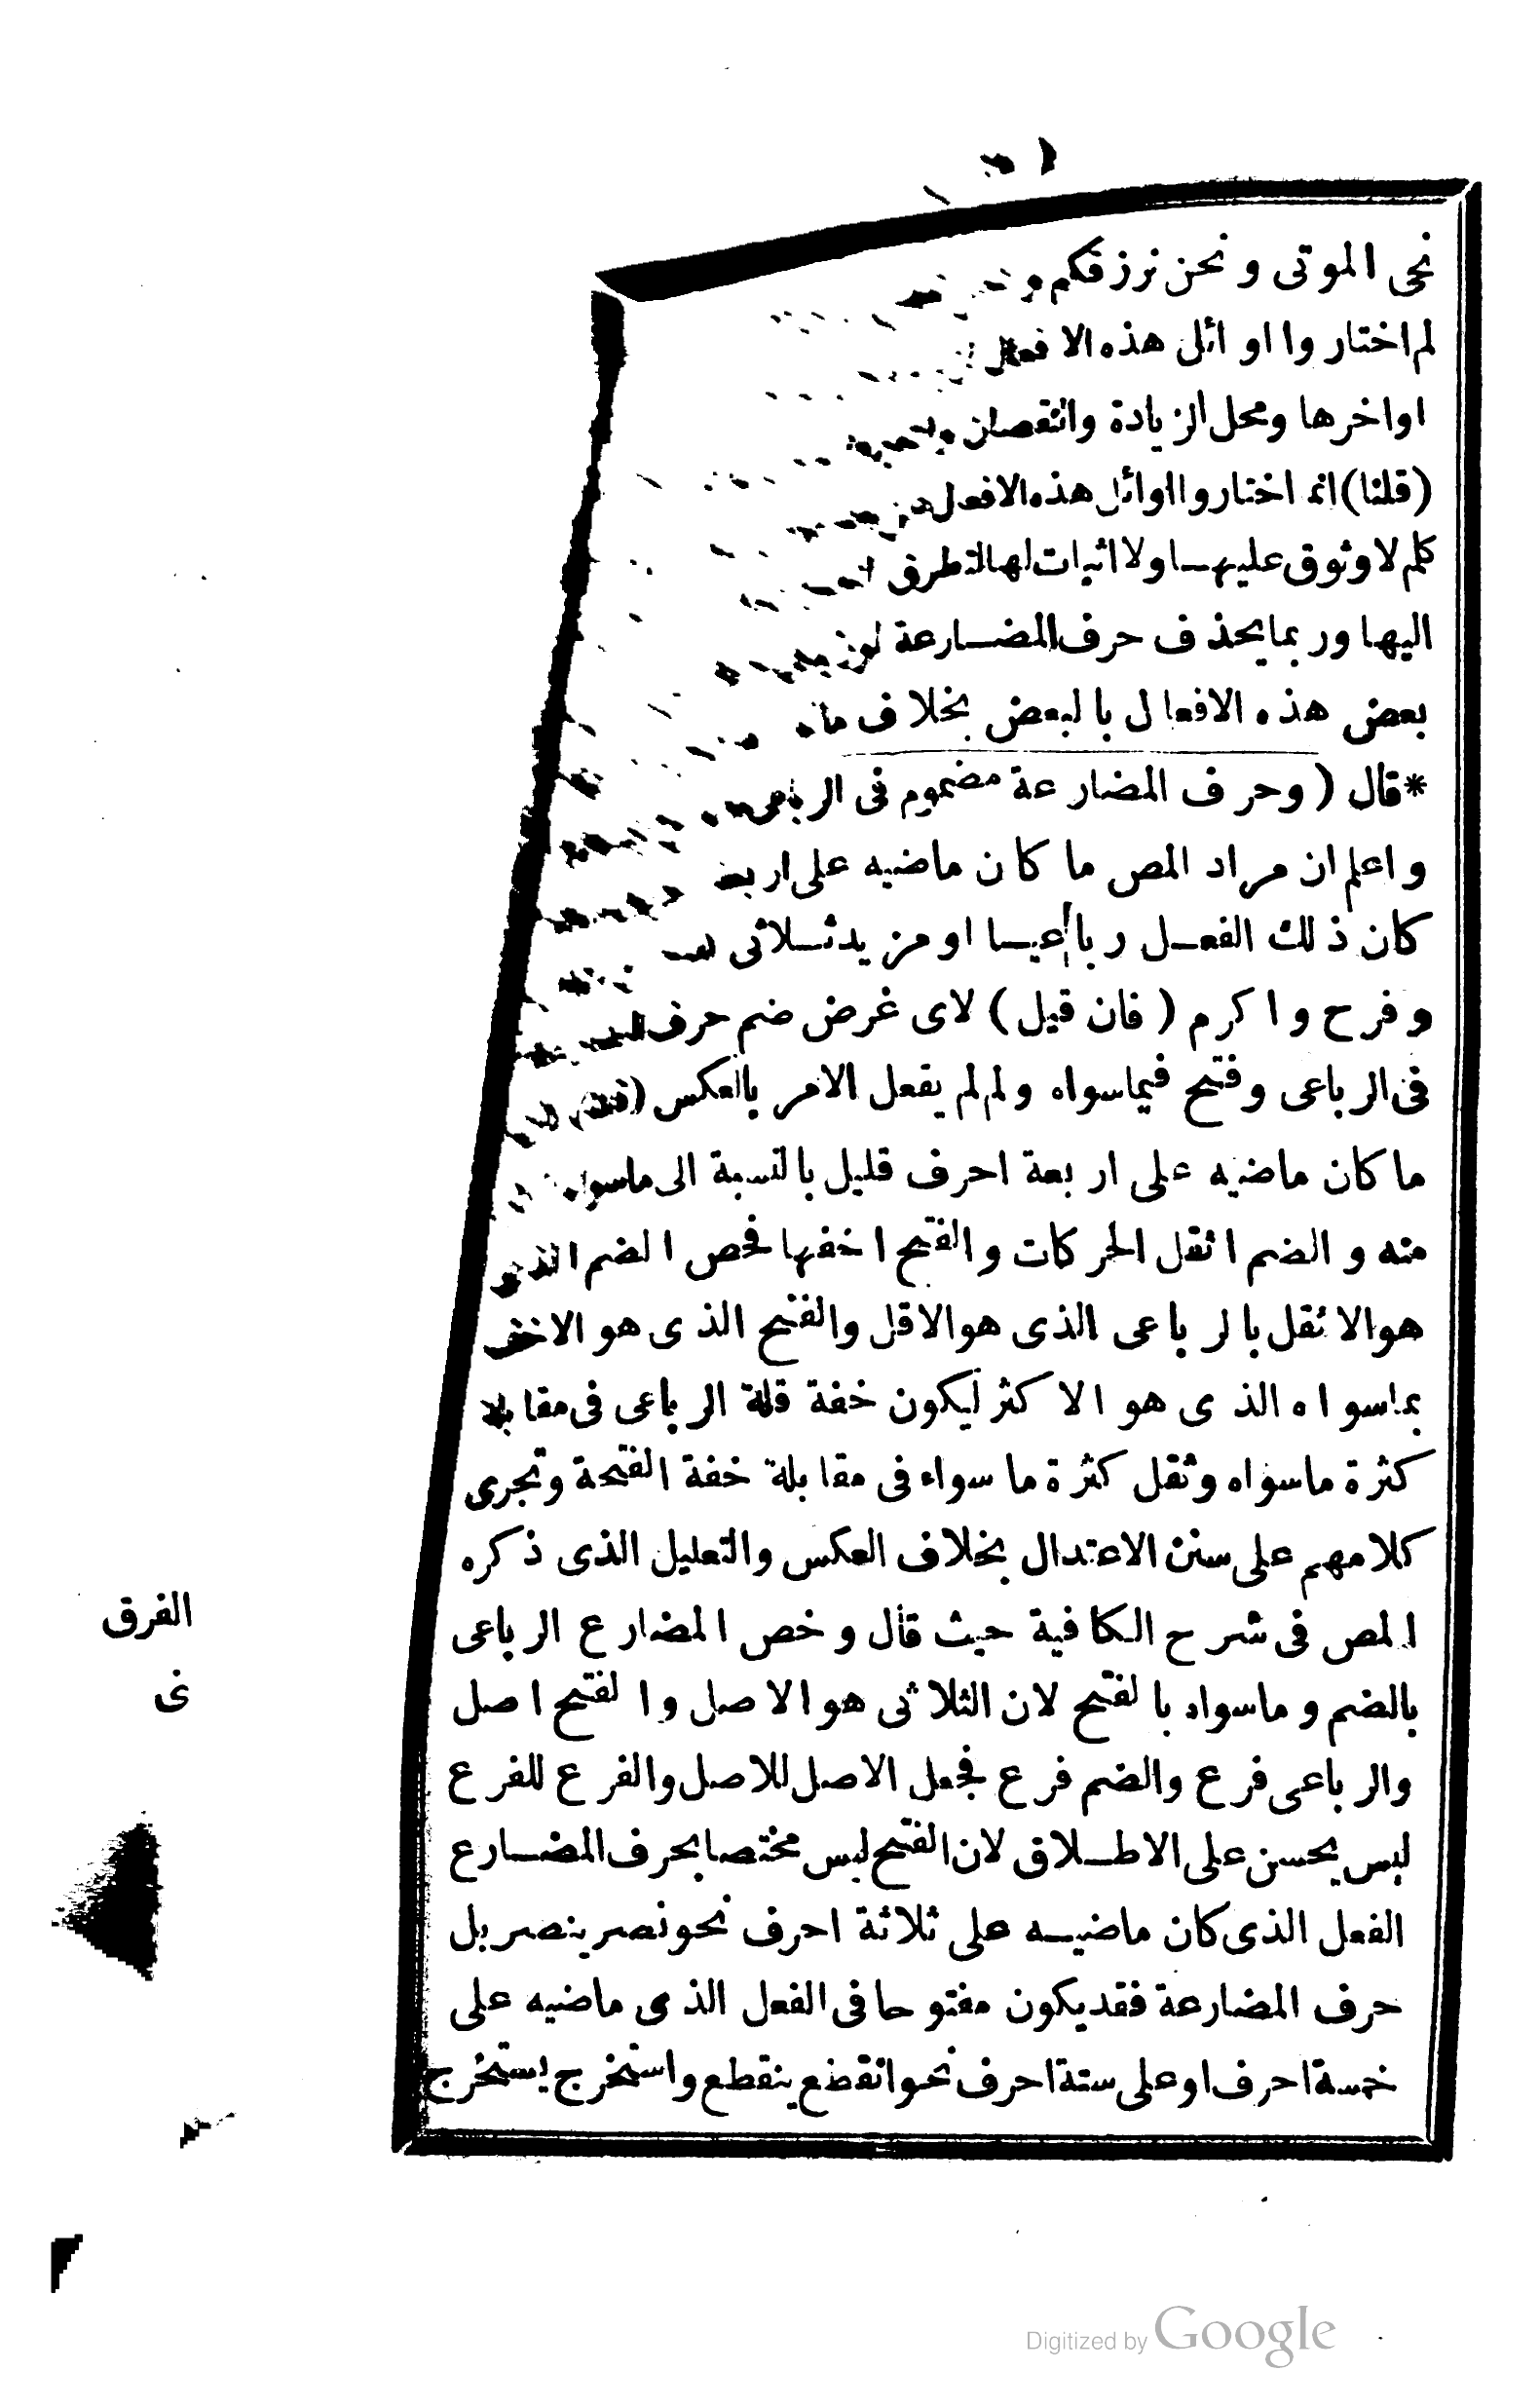 نحى الموتى ونحن نرزقكم
لم اختاروا اوائل هذه الافعال
اواخرها ومحل الزيادة والنقصان
(قلنا) انما اختاروا اوائل هذه الافعال
كلم لا وثوق عليهـا ولا اثبات لها لتطرق
اليها وربما يحذف حرف المضـارعة
بعض هذه الافعال بالبعض بخلاف
*قال (وحرف المضارعة مضموم فى الرباعى
واعلم ان مراد المص ما كان ماضيه على اربعة
كان ذلك الفعـل رباعيـا او مزيد ثـلاثى
وفرح واكرم (فان قيل) لاى غرض ضم حرف
فى الرباعى وفتح فيما سواه ولم لم يفعل الامر بالعكس
ما كان ماضيه على اربعة احرف قليل بالنسبة الى ما سواه
منه والضم اثقل الحركات والفتح اخفها فخص الضم الذى
هو الاثقل بالرباعى الذى هو الاقل والفتح الذى هو الاخف
بماسواه الذى هو الاكثر ليكون خفة قلة الرباعى فى مقابلة
كثرة ماسواه وثقل كثرة ما سواه فى مقابلة خفة الفتحة وتجرى
كلامهم على سنن الاعتدال بخلاف العكس والتعليل الذى ذكره
المص فى شرح الكافية حيث قال وخص المضارع الرباعى
بالضم وماسواه بالفتح لان الثلاثى هو الاصل والفتح اصل
والرباعى فرع والضم فرع فجعل الاصل للاصل والفرع للفرع
ليس بحسن على الاطـلاق لان الفتح ليس مختصا بحرف المضـارع
الفعل الذى كان ماضيـه على ثلاثة احرف نحو نصر ينصر بل
حرف المضارعة فقد يكون مفتوحا فى الفعل الذى ماضيه على
خمسة احرف او على ستة احرف نحو انقطع ينقطع واستخرج يستخرج
الفرق
فى
Digitized by Google